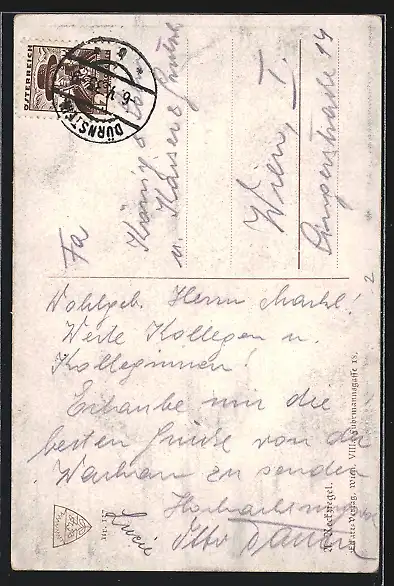 ÖSTERREICH
DÜRNSTEIN
Fa
König
u. Kaiser &
Wien, I.
Singerstraße 14
2
Wohlgeb. Herrn
Werte Kollegen u.
Kolleginnen!
Erlaube mir die
besten Grüße von der
Wachau zu senden
Hochachtungsvoll
Otto
Lucie
Nr. 15
Verlag, Wien, VIII., Fuhrmannsgasse 18.